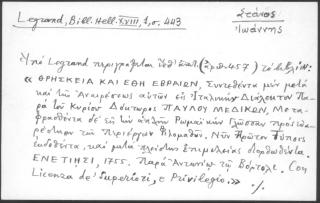 Legrand, Bibl. Hell. XVIII, 1, σ. 443
Στάνος
Ἰωάννης
Ὑπὸ Legrand περιγράφεται ὑπ' ἀριθ. 457 τὸ βιβλίον:
« ΘΡΗΣΚΕΙΑ ΚΑΙ ΕΘΗ ΕΒΡΑΙΩΝ, Συντεθέντα μὲν μετὰ
καὶ τῆς Ἀναιρέσεως αὐτῶν εἰς Ἰταλικὴν Διάλεκτον Πα-
ρὰ τοῦ Κυρίου Δόκτωρος ΠΑΥΛΟΥ ΜΕΔΙΚΩΝ, Μετα-
φρασθέντα δὲ εἰς τὴν ἁπλῆν Ρωμαϊκὴν Γλῶσσαν πρὸς εὐα-
ρέστησιν τῶν περιέργων Φιλομαθῶν. Νῦν Πρῶτον Τύποις
ἐκδοθέντα, καὶ μετὰ πλείστης Ἐπιμελείας διορθωθέντα.
ΕΝΕΤΙΗΣΙ, 1755. Παρὰ Ἀντωνίῳ τῷ Βόρτολι. Con
Licenza de' Superiori, e Privilegio. » ./.